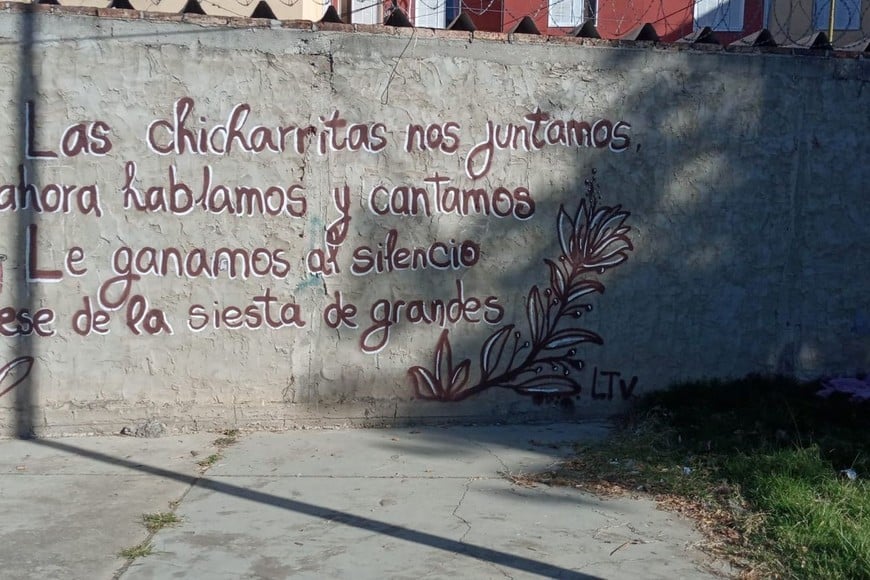 Las chicharritas nos juntamos,
ahora hablamos y cantamos
Le ganamos al silencio
ese de la siesta de grandes
LTV